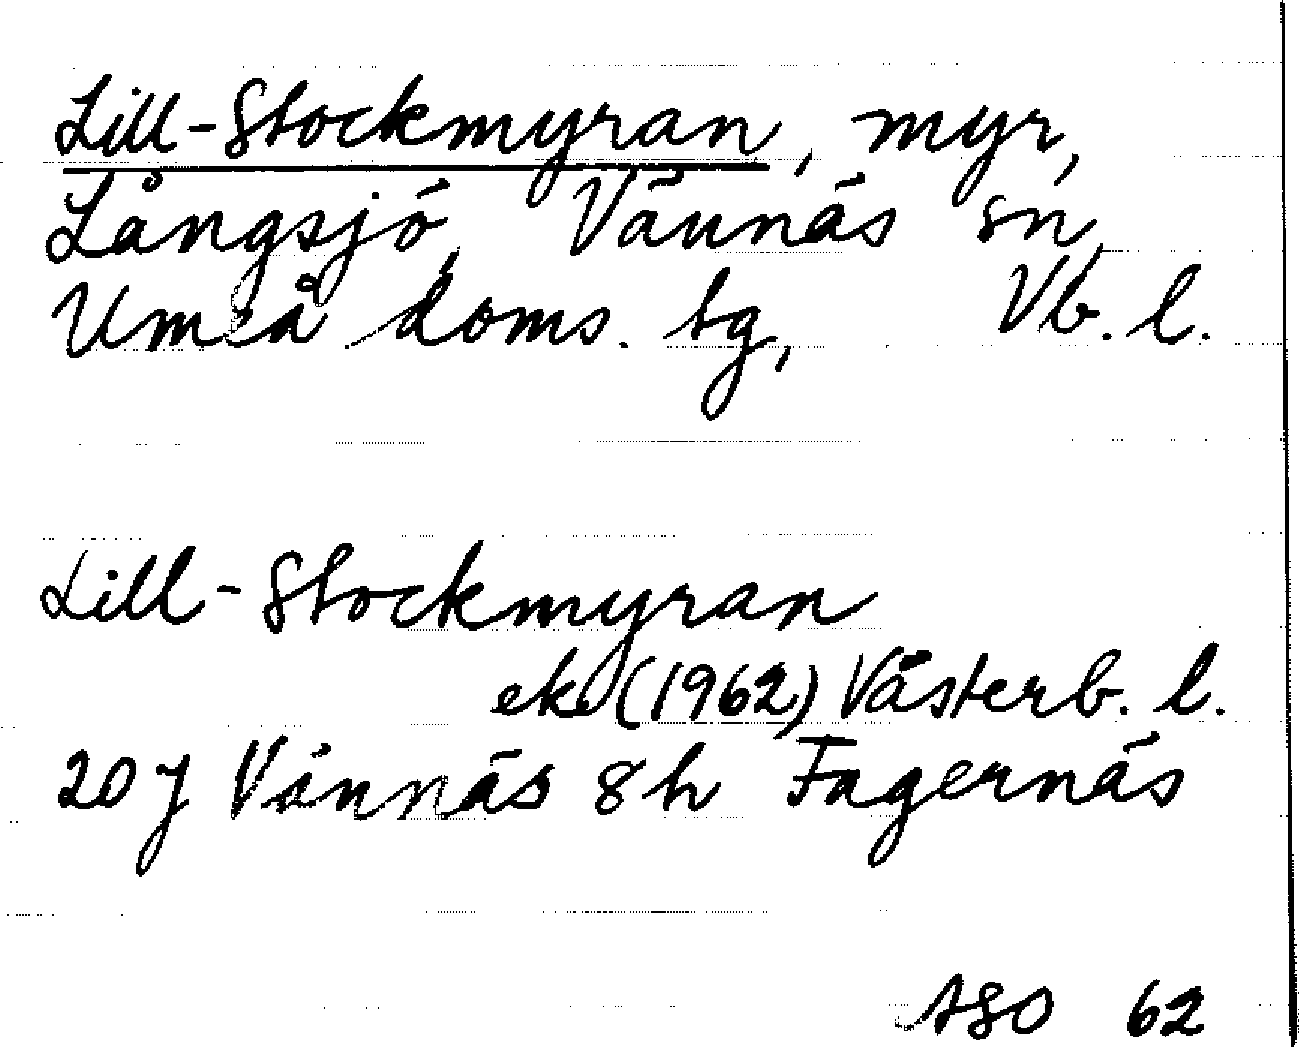 Lill-Stockmyran, myr,
Långsjö, Vännäs sn,
Umeå doms. tg, Vb. l.
Lill-Stockmyran
ek (1962) Västerb. l.
20J Vännäs 8h Fagernäs
ASO 62